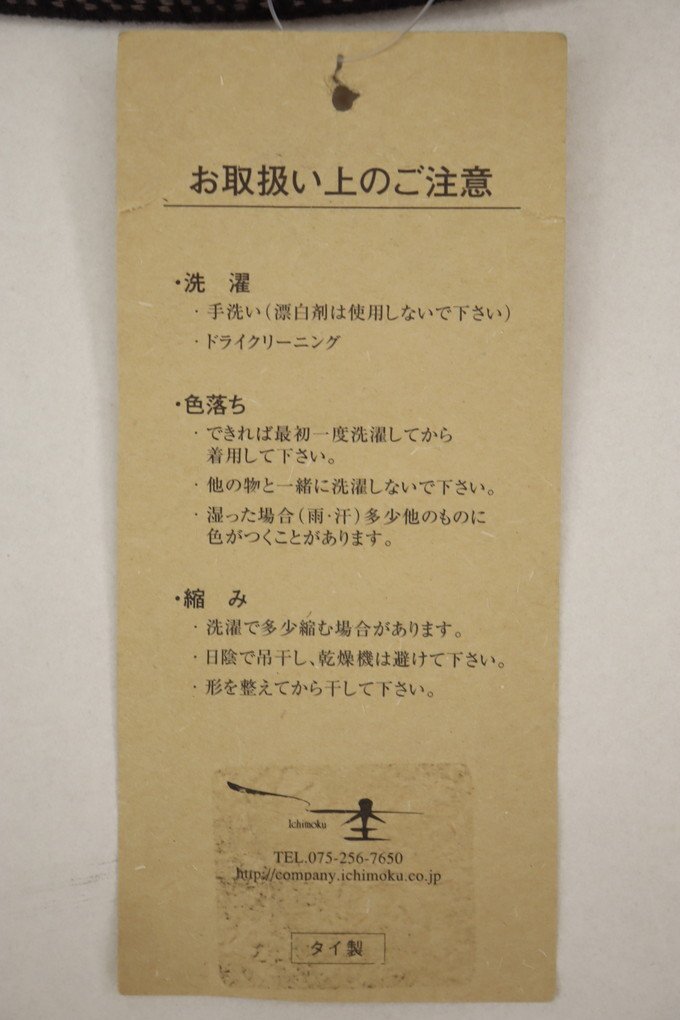 お取扱い上のご注意
・洗　濯
・手洗い（漂白剤は使用しないで下さい）
・ドライクリーニング
・色落ち
・できれば最初一度洗濯してから
着用して下さい。
・他の物と一緒に洗濯しないで下さい。
・湿った場合（雨・汗）多少他のものに
色がつくことがあります。
・縮　み
・洗濯で多少縮む場合があります。
・日陰で吊干し、乾燥機は避けて下さい。
・形を整えてから干して下さい。
Ichimoku
TEL.075-256-7650
http://company.ichimoku.co.jp
タイ製